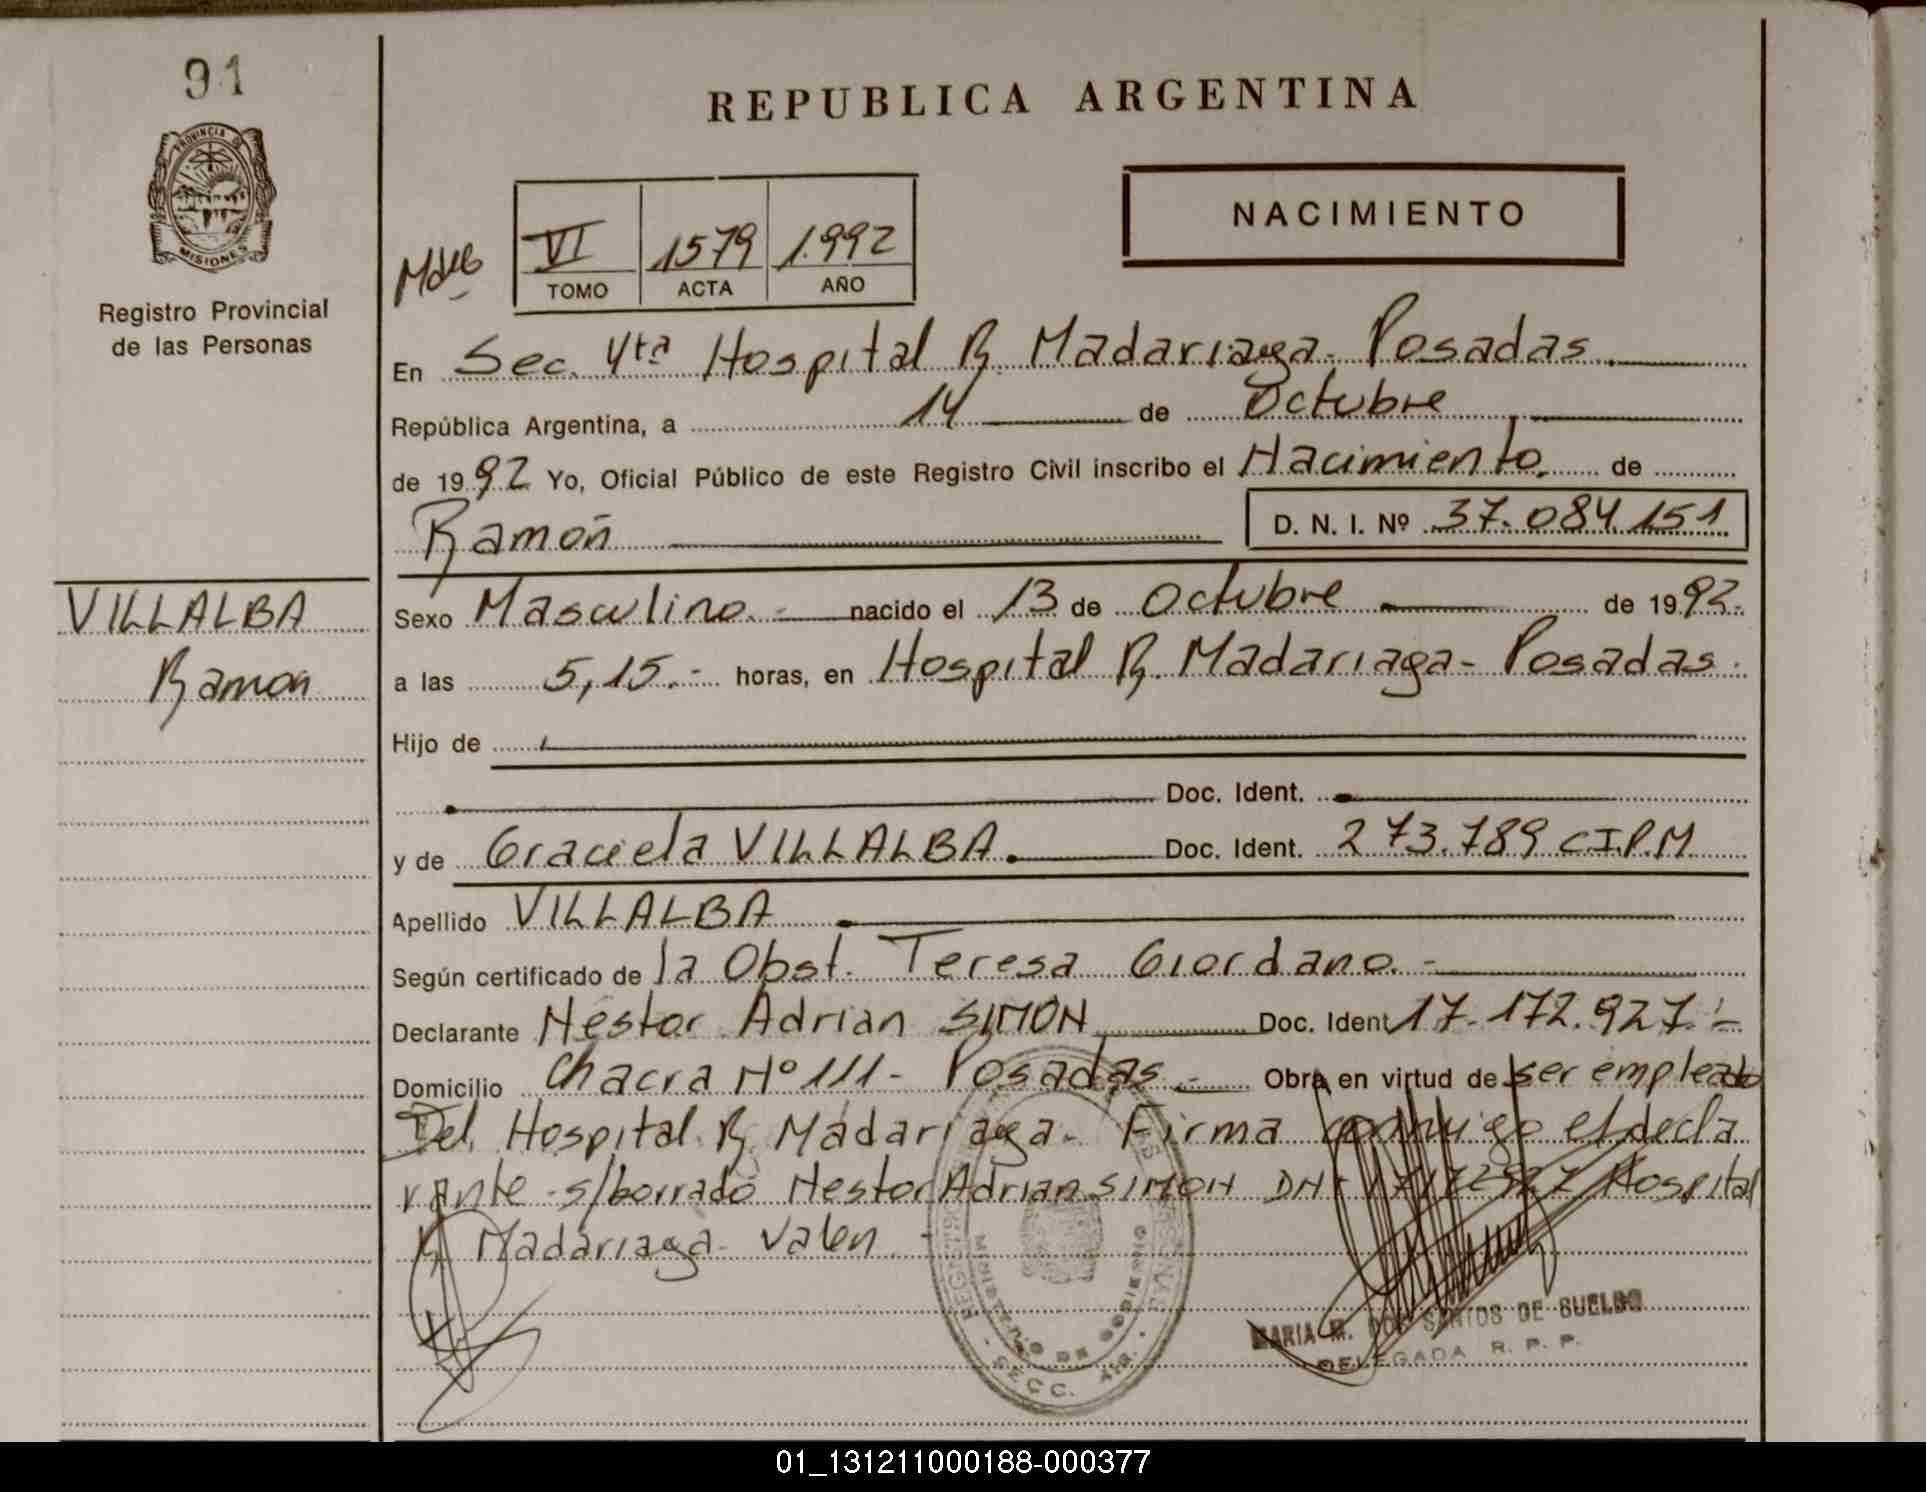 91
REPUBLICA ARGENTINA
PROVINCIA DE
MISIONES
NACIMIENTO
VI 1579 1.992
TOMO ACTA AÑO
Registro Provincial
de las Personas
En Sec. 4ta Hospital R. Madariaga. Posadas.
República Argentina, a 14 de Octubre
de 1992 Yo, Oficial Público de este Registro Civil inscribo el Nacimiento. de
Ramón D. N. I. Nº 37.084.151
VILLALBA
Ramon
Sexo Masculino.- nacido el 13 de Octubre de 1992.
a las 5,15.- horas, en Hospital R. Madariaga- Posadas.
Hijo de
Doc. Ident.
y de Graciela VILLALBA. Doc. Ident. 273.789 C.I.P.M
Apellido VILLALBA
Según certificado de la Obst. Teresa Giordano.-
Declarante Néstor Adrian SIMÓN Doc. Ident 17.172.927.-
Domicilio Chacra Nº 111- Posadas.- Obra en virtud de ser empleado
Del Hospital R. Madariaga. Firma conmigo el decla
rante -s/borrado Nestor Adrian SIMON DNI 17172927 Hospital
R Madariaga- Valen
MARIA M. DOS SANTOS DE SUELDO
DELEGADA R. P. P.
MINISTERIO DE GOBIERNO
SECC. 4ta.
01_131211000188-000377